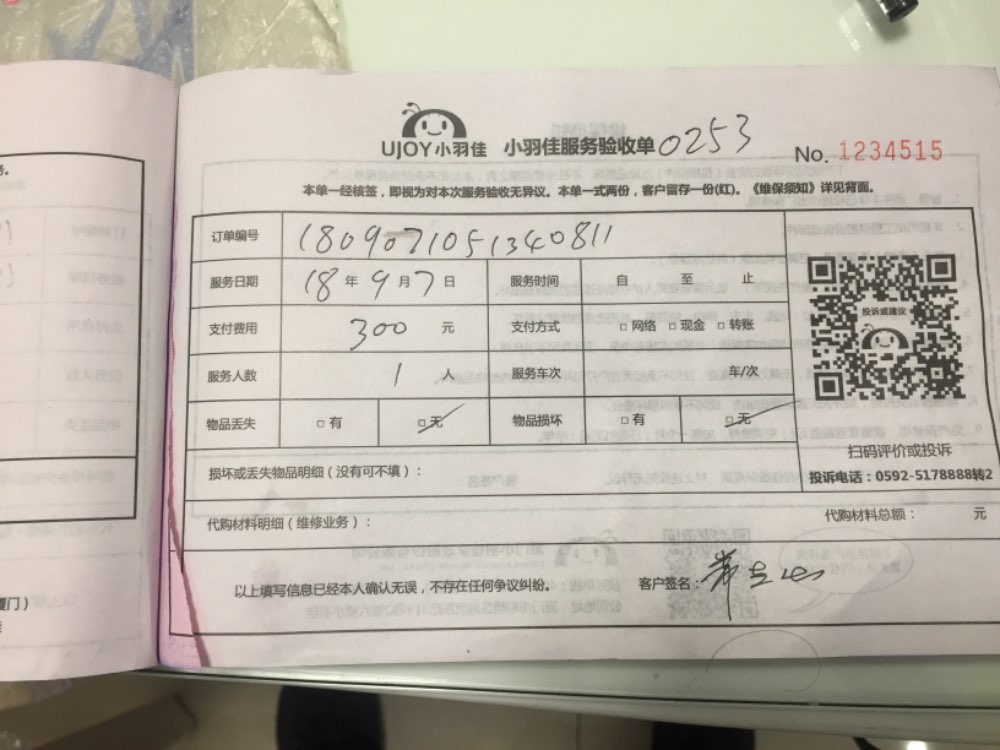 UJOY小羽佳 小羽佳服务验收单 0253 No. 1234515
本单一经核签，即视为对本次服务验收无异议。本单一式两份，客户留存一份(红)。《维保须知》详见背面。
订单编号 1809071051340811
服务日期 18 年 9 月 7 日 服务时间 自 至 止
支付费用 300 元 支付方式 □网络 □现金 □转账
服务人数 1 人 服务车次 车/次
物品丢失 □有 □无 物品损坏 □有 □无
投诉或建议
扫码评价或投诉
投诉电话：0592-5178888转2
损坏或丢失物品明细（没有可不填）：
代购材料明细（维修业务）： 代购材料总额： 元
以上填写信息已经本人确认无误，不存在任何争议纠纷。 客户签名：
厦门）